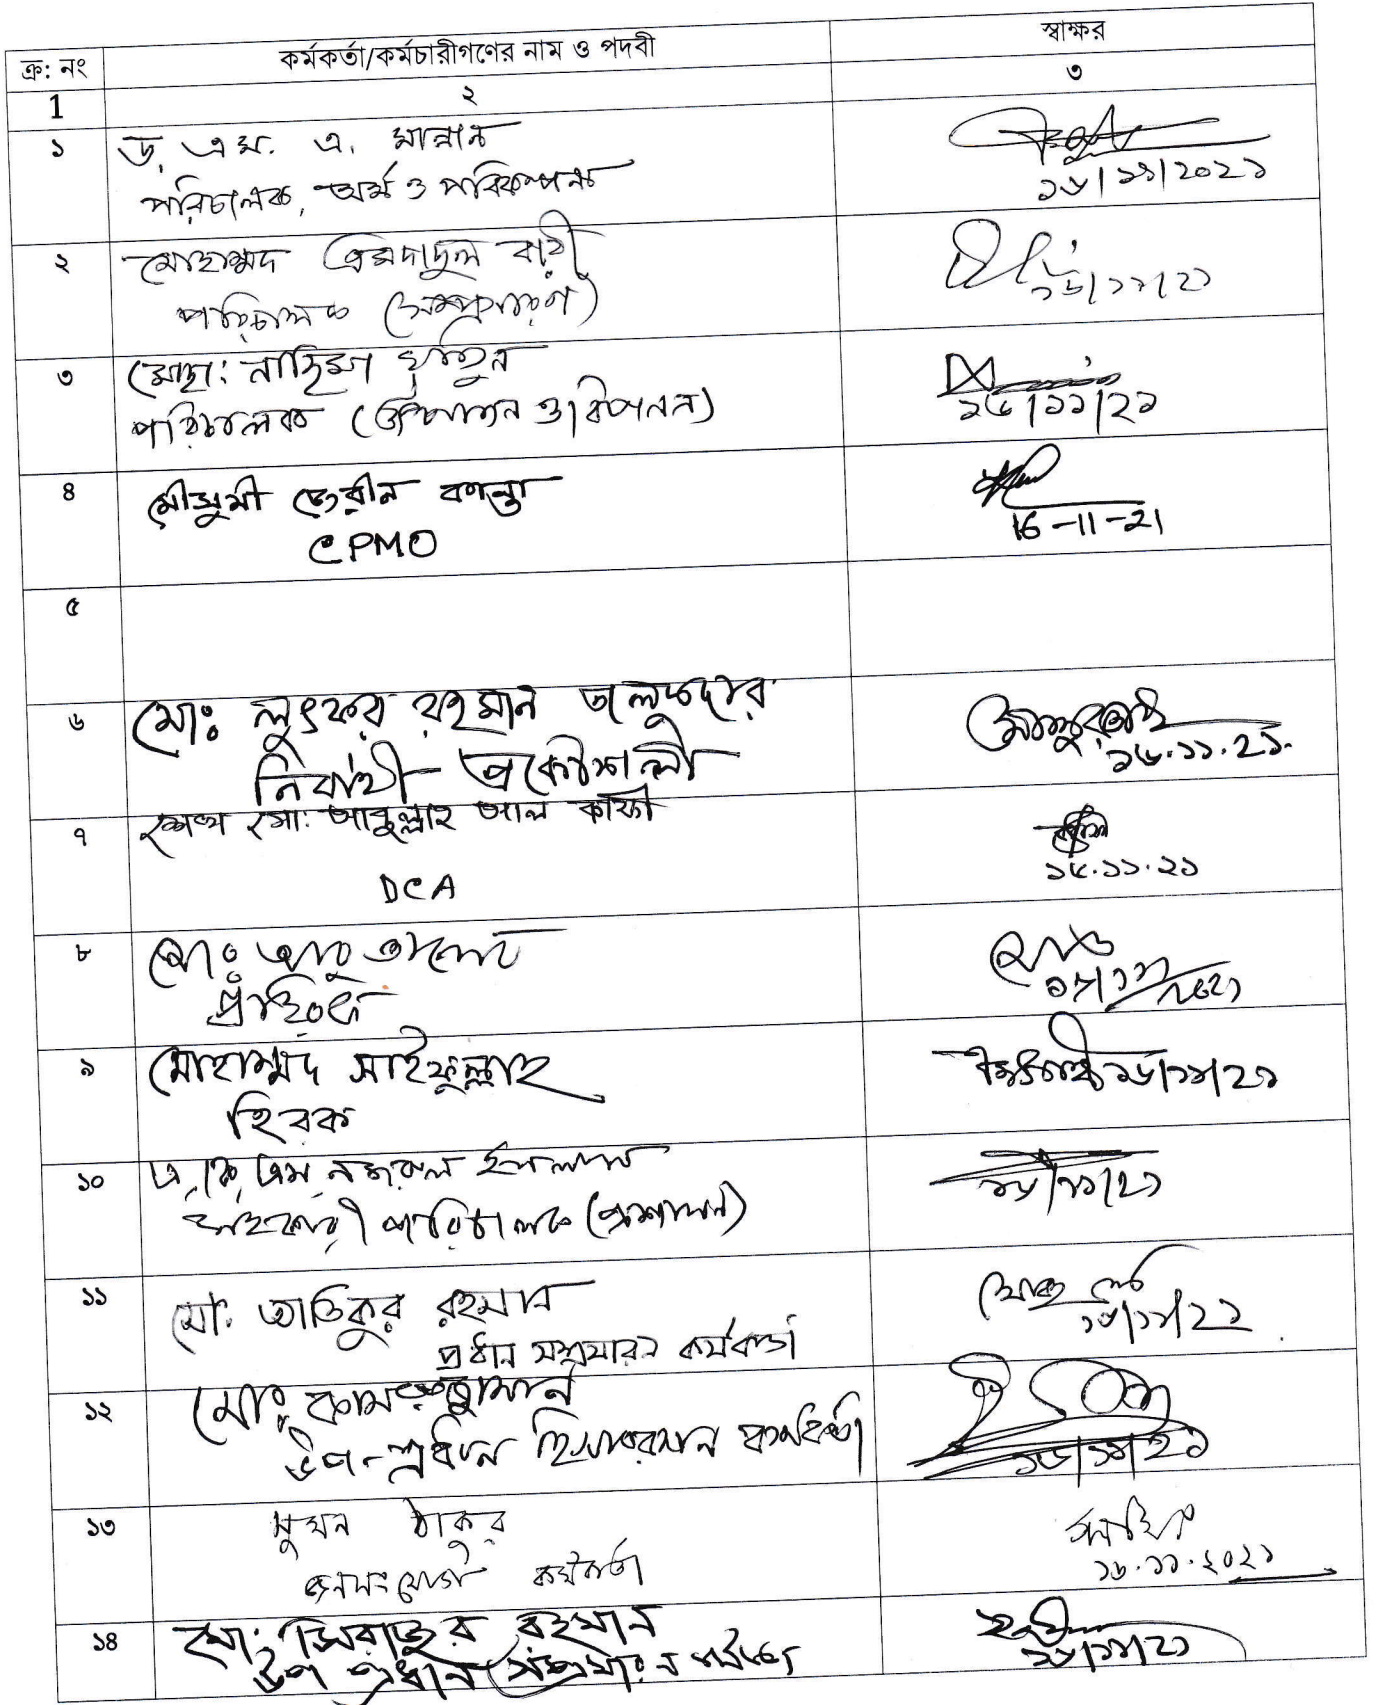 ক্র: নং কর্মকর্তা/কর্মচারীগণের নাম ও পদবী স্বাক্ষর
1 ২ ৩
১ ড. এম. এ. মান্নান
পরিচালক, অর্থ ও পরিকল্পনা ১৬/১১/2০২১
২ মোহাম্মদ এমদাদুল বারী
পরিচালক (সম্প্রসারণ) ১৬/১১/২১
৩ মোছা: নাছিমা খাতুন
পরিচালক (উৎপাদন ও বিপনন) ১৬/১১/২১
৪ মৌসুমী জেরীন কান্তা
CPMO 16-11-21
৫
৬ মোঃ লুৎফর রহমান তালুকদার
নির্বাহী প্রকৌশলী ১৬.১১.২১.
৭ শেখ মো: আব্দুল্লাহ আল কাফী
DCA ১৬.১১.২১
৮ মোঃ আবু তালেব
১৬/১১/২০২১
৯ মোহাম্মদ সাইফুল্লাহ
হিরক ১৬/১১/২১
১০ এ, কে, এম, নজরুল ইসলাম
সহকারী পরিচালক (প্রশাসন) ১৬/১১/২১
১১ মো: আতিকুর রহমান
প্রধান সম্প্রসারন কর্মকর্তা ১৬/১১/২১
১২ মোঃ কামরুজ্জামান
উপ-প্রধান হিসাবরক্ষন কর্মকর্তা ১৬/১১/২১
১৩ সুমন ঠাকুর
জনসংযোগ কর্মকর্তা ১৬.১১.২০২১
১৪ মো: সিরাজুর রহমান
উপ প্রধান সম্প্রসারন কর্মকর্তা ১৬/১১/২১